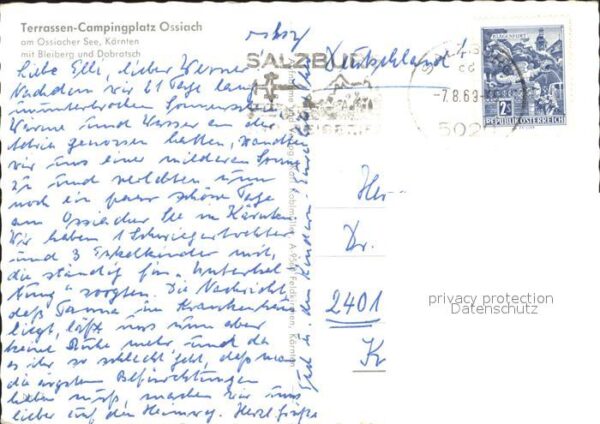 Terrassen-Campingplatz Ossiach
am Ossiacher See, Kärnten
mit Bleiberg und Dobratsch
Liebe Elli, lieber Werner
Nachdem wir 21 Tage lang
ununterbrochen Sonnenschein
Wärme und Wasser an der
Adria genossen hatten, wandten
wir uns einer milderen Sonne
zu und verlebten nun
noch ein paar schöne Tage
am Ossiacher See in Kärnten
Wir haben 1 Schwiegertochter
und 3 Enkelkinder mit,
die ständig für "Unterhal
tung" sorgten. Die Nachricht
daß Tanna im Krankenhaus
liegt, läßt uns nun aber
keine Ruhe mehr und da
es ihr so schlecht geht, daß man
die ärgsten Befürchtungen
haben muß, machen wir uns
lieber auf den Heimweg. Herzl. Grüße
Euch u. den Kindern
SALZBURG
Deutschland
-7.8.69
502
KLAGENFURT
2S
REPUBLIK ÖSTERREICH
Her
Dr.
2401
K
privacy protection
Datenschutz